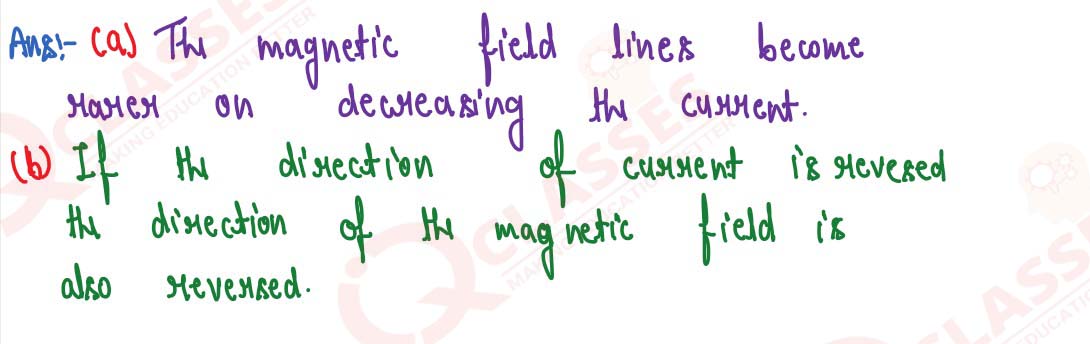 Ans:- (a) The magnetic field lines become
rarer on decreasing the current.
(b) If the direction of current is revesed
the direction of the magnetic field is
also reversed.